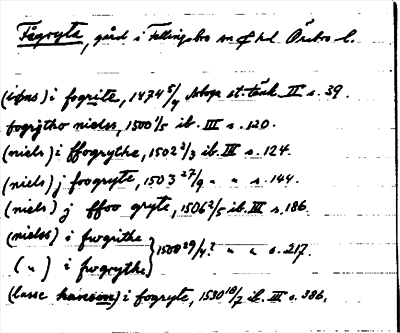 Fågryta, gård i Fellingsbro sn Ö hd Örebro l.
(jöns) i fogriite, 1474 5/4 Arboga st. tänk. II s. 39.
fogrytho nielss, 1500 1/5 ib. III s. 120.
(niels) i ffogrythe, 1502 2/3 ib. III s. 124.
(niels) j foogryte, 1503 27/9 " " s. 144.
(niels) j ffoo gryte, 1506 2/5 ib. III s. 186.
(nielss) i fwgrithe
} 1500 29/4? " " s. 217.
( " ) i fwgrythe
(lasse hanson) i fogryte, 1530 18/7 ib. III s. 386.